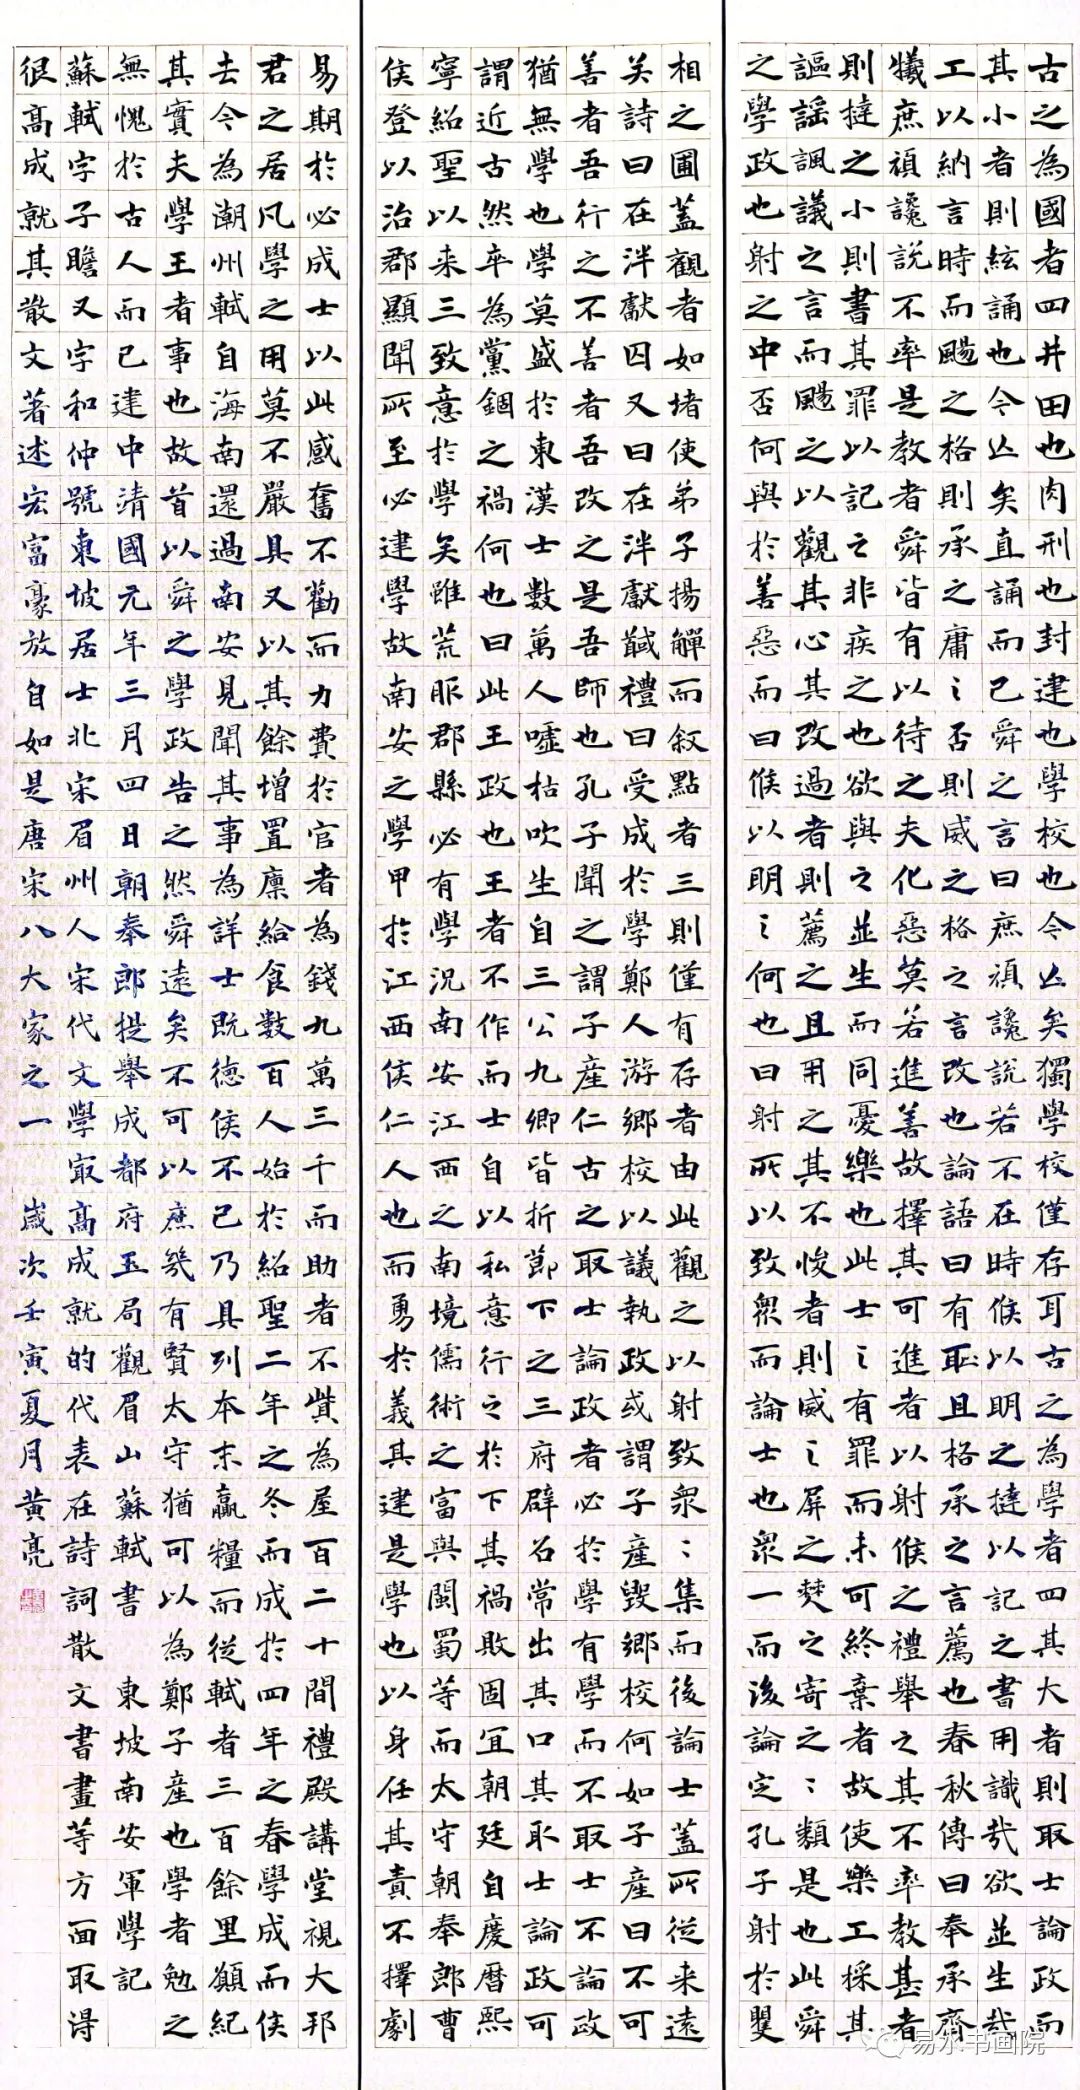 古之為國者四井田也肉刑也封建也學校也今亾矣獨學校僅存耳古之為學者四其大者則取士論政而
其小者則絃誦也今亾矣直誦而已舜之言曰庶頑讒說若不在時侯以明之撻以記之書用識哉欲並生哉
工以納言時而颺之格則承之庸之否則威之格之言改也論語曰有恥且格承之言薦也春秋傳曰奉承齊
犧庶頑讒說不率是教者舜皆有以待之夫化惡莫若進善故擇其可進者以射侯之禮舉之其不率教甚者
則撻之小則書其罪以記之非疾之也欲與之並生而同憂樂也此士之有罪而未可終棄者故使樂工採其
謳謠諷議之言而颺之以觀其心其改過者則薦之且用之其不悛者則威之屏之焚之寄之之類是也此舜
之學政也射之中否何與於善惡而曰侯以明之何也曰射所以致眾而論士也眾一而後論定孔子射於矍
相之圃蓋觀者如堵使弟子揚觶而叙點者三則僅有存者由此觀之以射致眾眾集而後論士蓋所從来遠
矣詩曰在泮獻囚又曰在泮獻馘禮曰受成於學鄭人游鄉校以議執政或謂子產毀鄉校何如子產曰不可
善者吾行之不善者吾改之是吾師也孔子聞之謂子產仁古之取士論政者必於學有學而不取士不論政
猶無學也學莫盛於東漢士數萬人噓枯吹生自三公九卿皆折節下之三府辟召常出其口其取士論政可
謂近古然卒為黨錮之禍何也曰此王政也王者不作而士自以私意行之於下其禍敗固宜朝廷自慶曆熙
寧紹聖以来三致意於學矣雖荒服郡縣必有學況南安江西之南境儒術之富與閩蜀等而太守朝奉郎曹
侯登以治郡顯聞所至必建學故南安之學甲於江西侯仁人也而勇於義其建是學也以身任其責不擇劇
易期於必成士以此感奮不勸而力費於官者為錢九萬三千而助者不貲為屋百二十間禮殿講堂視大邦
君之居凡學之用莫不嚴具又以其餘增置廩給食數百人始於紹聖二年之冬而成於四年之春學成而侯
去今為潮州軾自海南還過南安見聞其事為詳士既德侯不已乃具列本末贏糧而從軾者三百餘里願紀
其實夫學王者事也故首以舜之學政告之然舜遠矣不可以庶幾有賢太守猶可以為鄭子產也學者勉之
無愧於古人而已建中靖國元年三月四日朝奉郎提舉成都府玉局觀眉山蘇軾書 東坡南安軍學記
蘇軾字子瞻又字和仲號東坡居士北宋眉州人宋代文學最高成就的代表在詩詞散文書畫等方面取得
很高成就其散文著述宏富豪放自如是唐宋八大家之一 歲次壬寅夏月黃亮
易水书画院